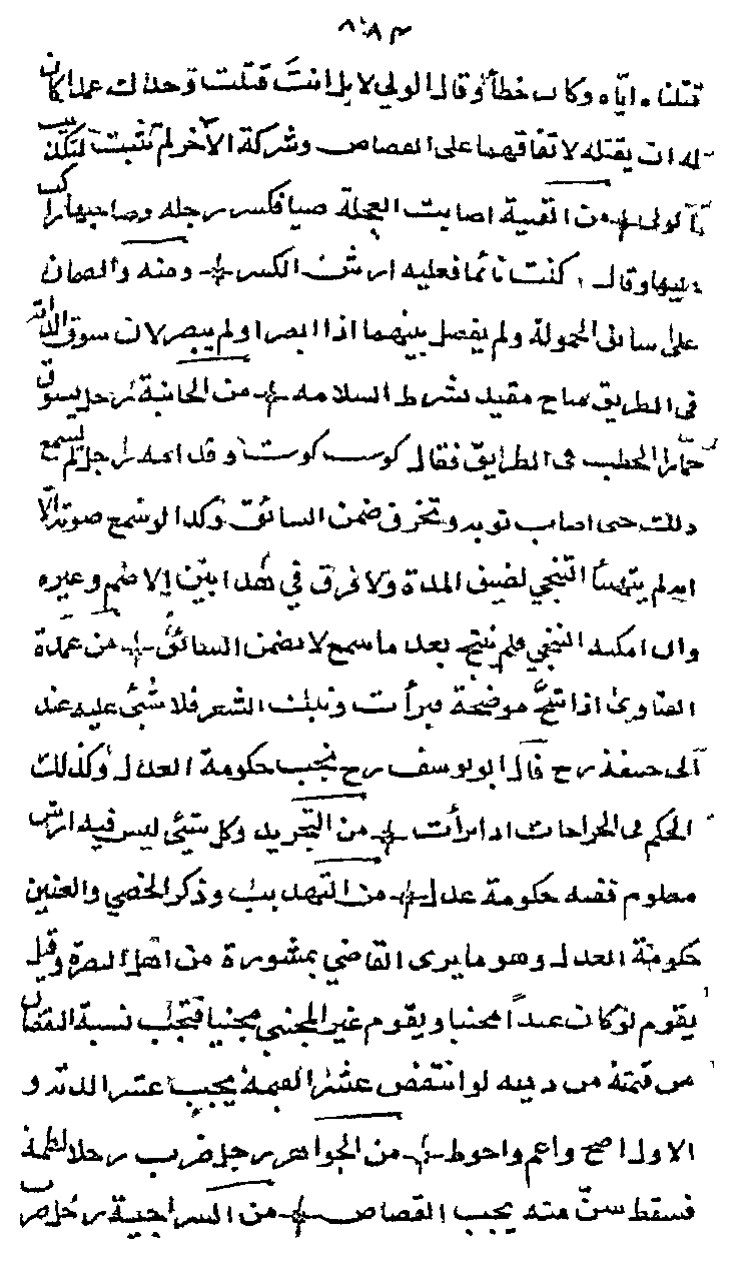 قتلناه اياه وكان خطأ وقال الولي لا بل انت قتلت وحدك عمدا كان
له ان يقتله لاتفاقهما على القصاص وشركة الآخر لم تثبت لتكذيب
الولى من القنية اصابت العجلة صبيا فكسر رجله وصاحبها راكب
فيها وقال كنت نائما فعليه ارش الكسر ومنه والضمان
على سائق الحمولة ولم يفصل بينهما اذا ابصر او لم يبصر لان سوق الدابة
فى الطريق مباح مقيد بشرط السلامه من الخانية رجل يسوق
حمار الحطب فى الطريق فقال كوست كوست وقدامه رجل لم يسمع
ذلك حتى اصاب ثوبه وتخرق ضمن السائق وكذا لو سمع صوته الا
انه لم يتهيأ التنحي لضيق المدة ولا فرق في هذا بين الاصم وغيره
وان امكنه التنحي فلم يتنح بعد ما سمع لا يضمن السائق من عمدة
الفتاوى اذا شج موضحة فبرأت ونبت الشعر فلا شئ عليه عند
ابى حنيفة رح قال ابو يوسف رح يجب حكومة العدل وكذلك
الحكم فى الجراحات اذا برأت من التجريد وكل شئ ليس فيه ارش
معلوم ففيه حكومة عدل من التهذيب وذكر الخصي والعنين
حكومة العدل وهو ما يرى القاضي بمشورة من اهل البصرة وقيل
يقوم لو كان عبدا مجنيا ويقوم غير المجني مجنيا فتجب نسبة النقصان
من قيمته من ديته لو انتقض عشر القيمة يجب عشر الدية و
الاول اصح واعم واحوط من الجواهر رجل ضرب رجلا لطمة
فسقط سن منه يجب القصاص من السراجية رجل ضرب